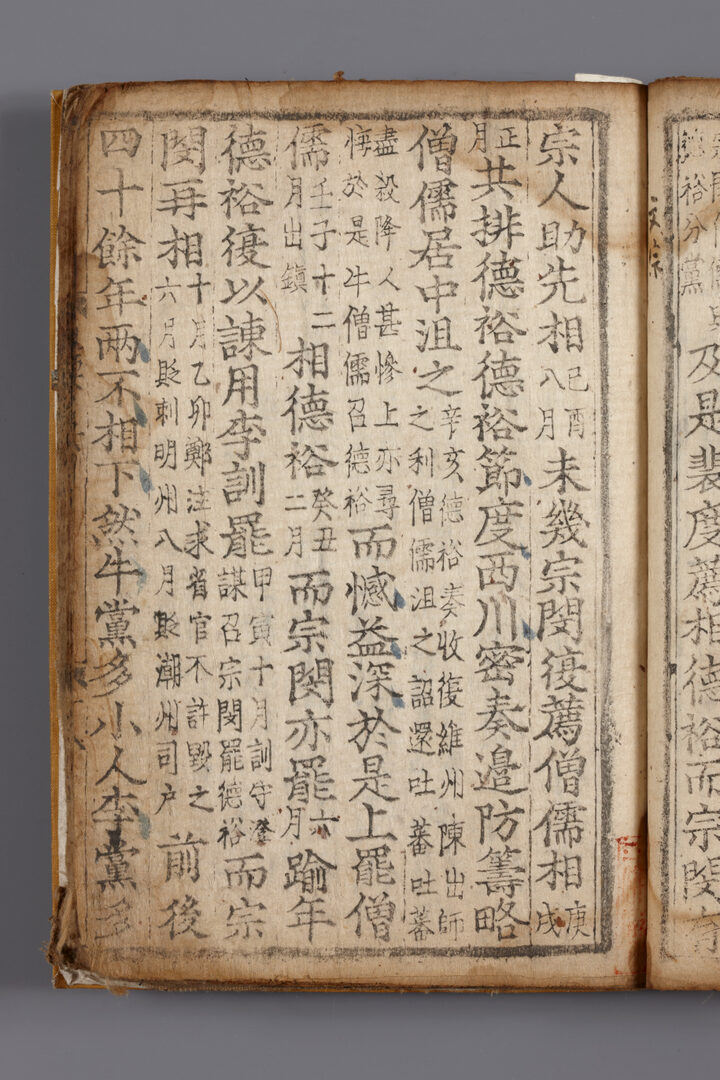 德裕分黨及是裴度薦相德裕而宗閔
宗人助先相己酉八月未幾宗閔復薦僧儒相庚戌
正月共排德裕德裕節度西川密奏邉防籌略
僧儒居中沮之辛亥德裕奏收復維州陳出師之利僧儒沮之詔還吐蕃吐蕃
盡殺降人甚慘上亦尋悔於是牛僧儒召德裕而憾益深於是上罷僧
儒壬子十二月出鎮相德裕癸丑二月而宗閔亦罷六月踰年
德裕復以諌用李訓罷甲寅十月訓守澄謀召宗閔罷德裕而宗
閔再相十月乙卯鄭注求省官不許毀之六月貶刺明州八月貶潮州司户前後
四十餘年两不相下然牛黨多小人李黨多